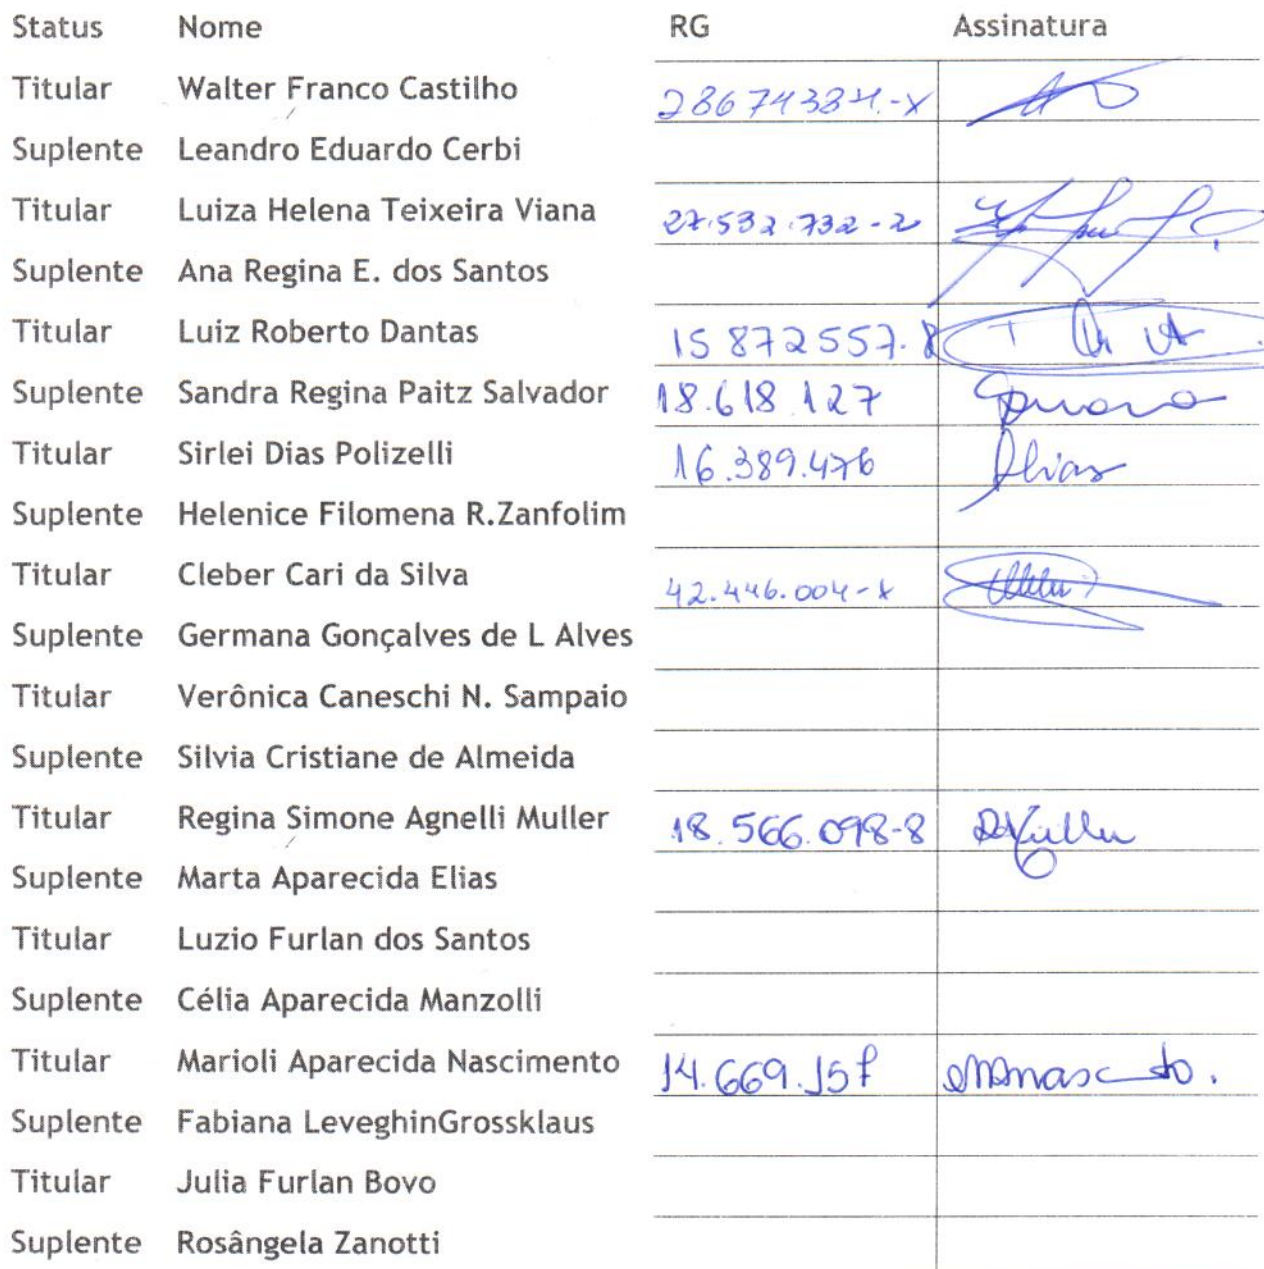 Status Nome RG Assinatura
Titular Walter Franco Castilho 28674384-X
Suplente Leandro Eduardo Cerbi
Titular Luiza Helena Teixeira Viana 27.532.732-2
Suplente Ana Regina E. dos Santos
Titular Luiz Roberto Dantas 15 872557.8
Suplente Sandra Regina Paitz Salvador 18.618.127
Titular Sirlei Dias Polizelli 16.389.476 Dias
Suplente Helenice Filomena R.Zanfolim
Titular Cleber Cari da Silva 42.446.004-x
Suplente Germana Gonçalves de L Alves
Titular Verônica Caneschi N. Sampaio
Suplente Silvia Cristiane de Almeida
Titular Regina Simone Agnelli Muller 18.566.098-8 RMuller
Suplente Marta Aparecida Elias
Titular Luzio Furlan dos Santos
Suplente Célia Aparecida Manzolli
Titular Marioli Aparecida Nascimento
Suplente Fabiana LeveghinGrossklaus
Titular Julia Furlan Bovo
Suplente Rosângela Zanotti